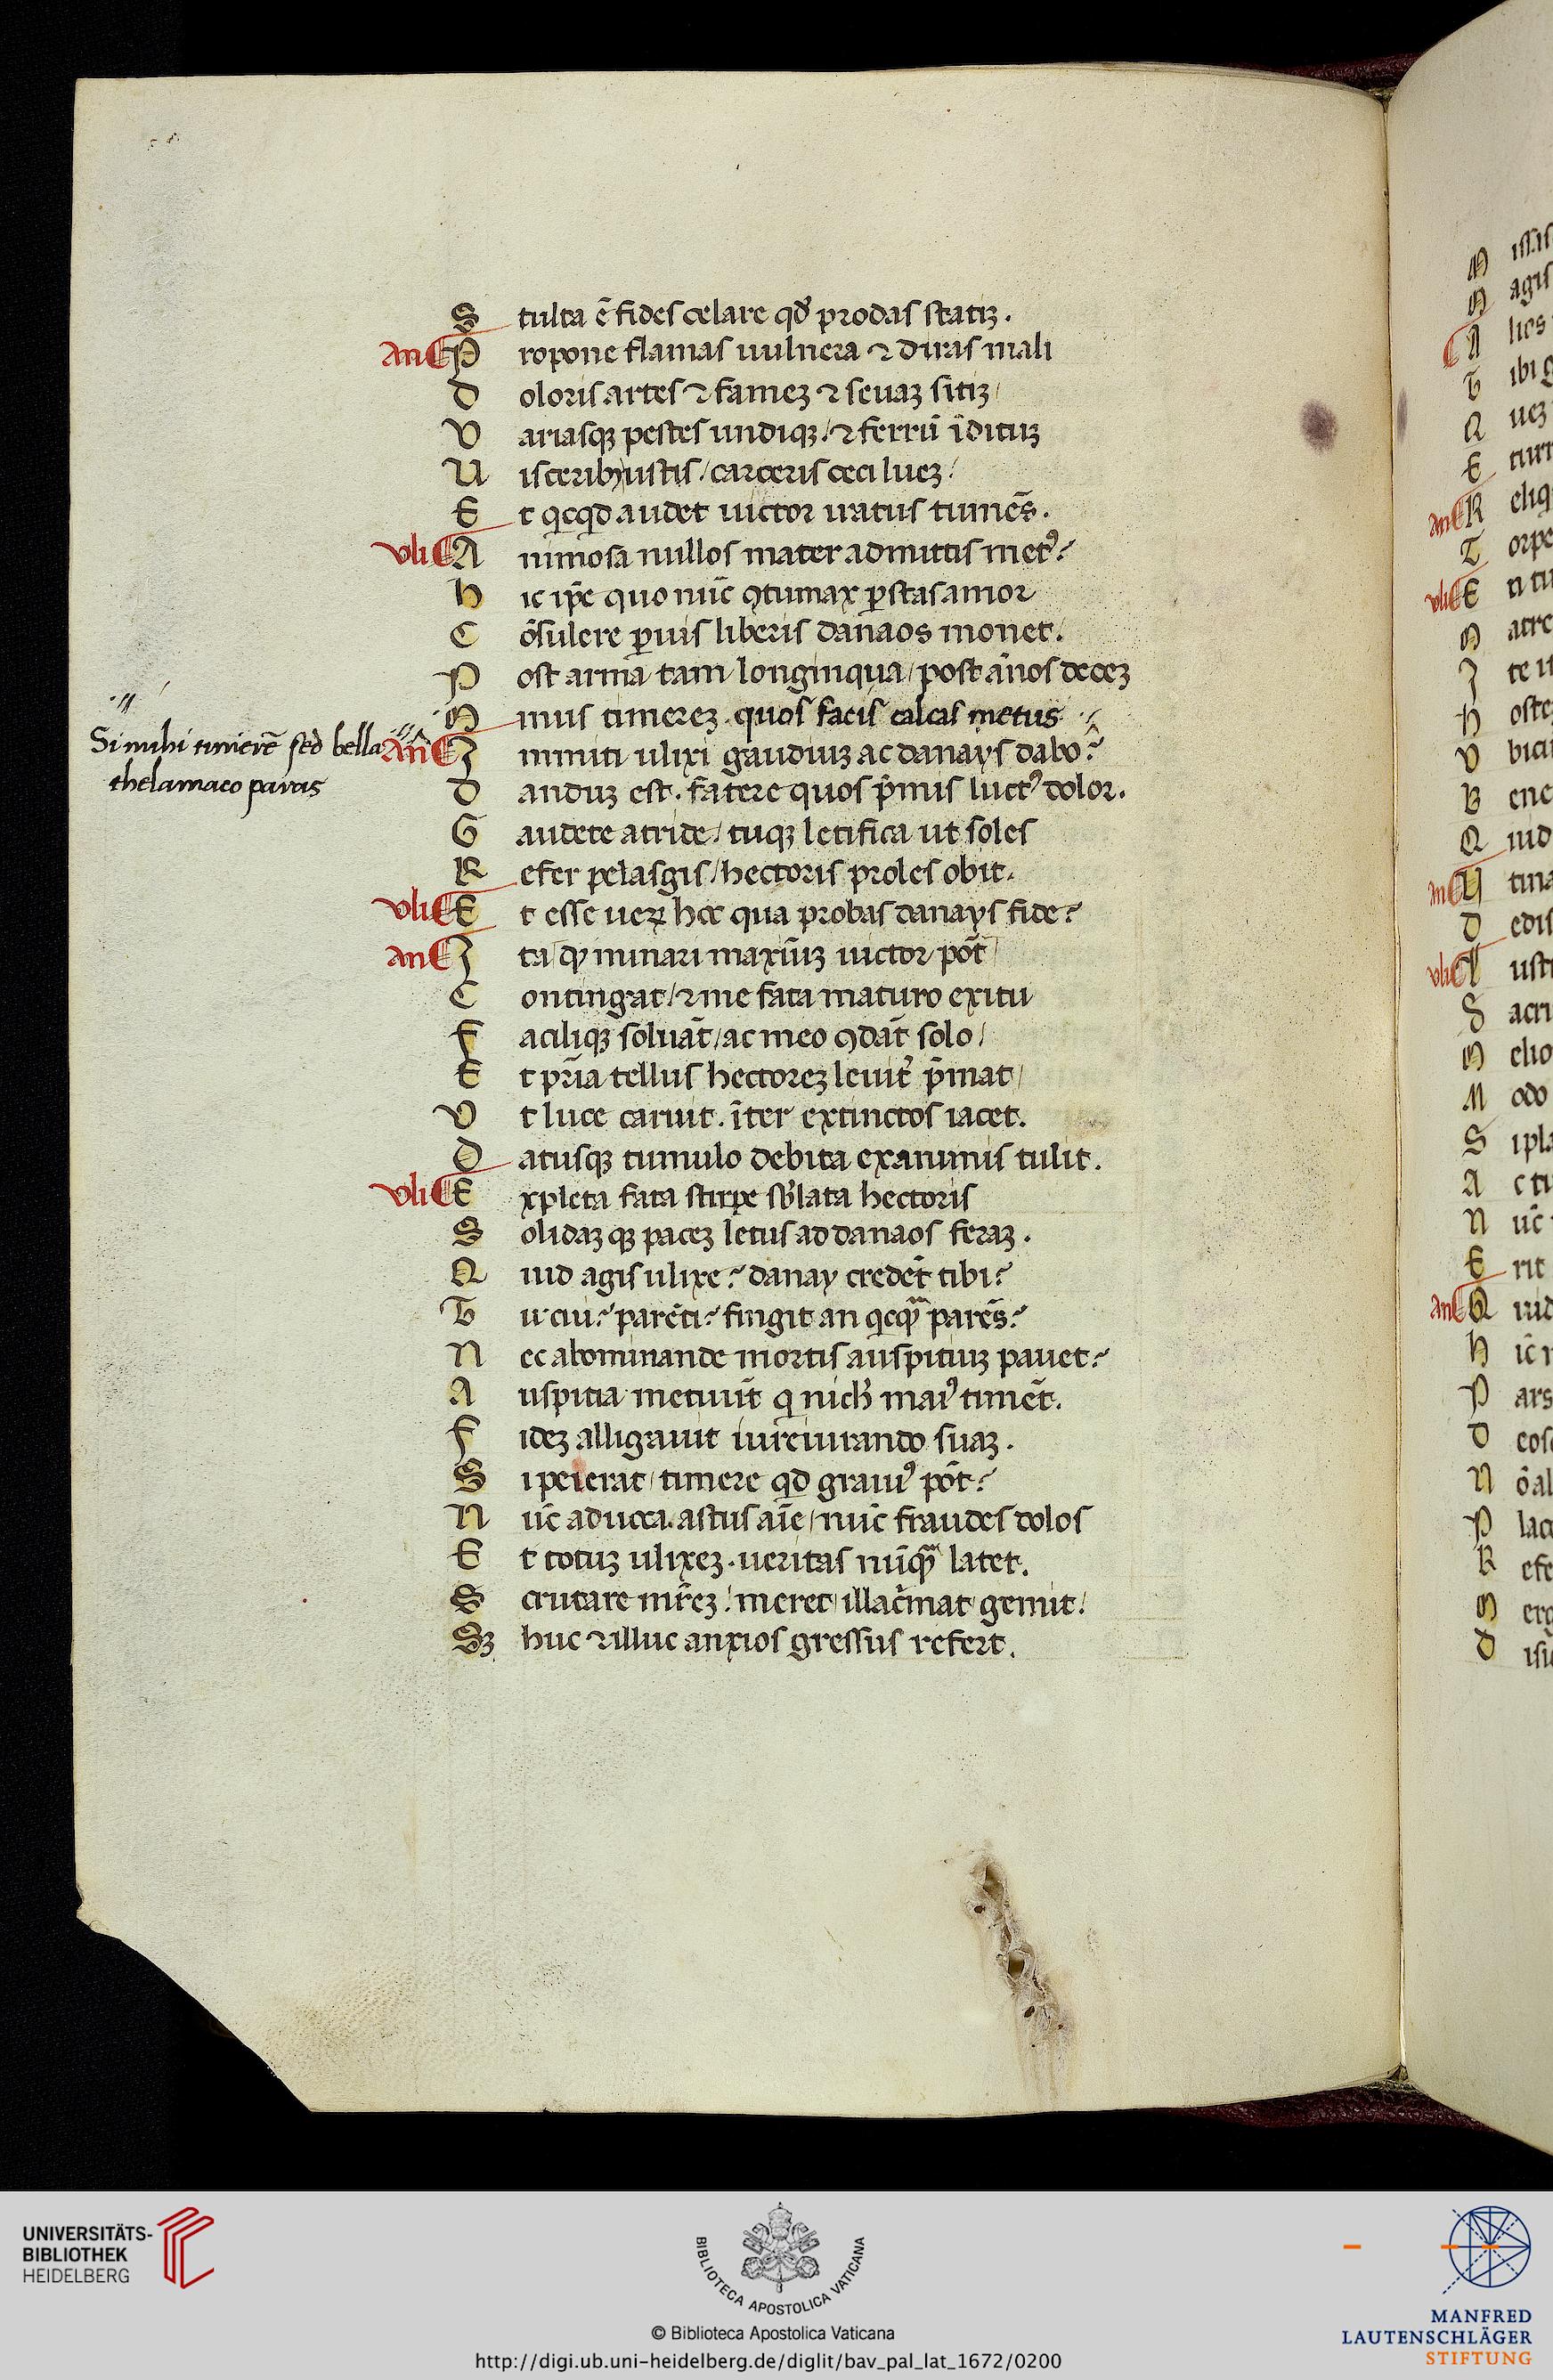 S tulta ē fides celare qđ prodas statiꝫ.
An P ropone flamas uulnera ⁊ diras mali
D oloris artes ⁊ fameꝫ ⁊ seuaꝫ sitiꝫ/
V ariasqꝫ pestes undiqꝫ/ ⁊ ferrū īdituꝫ
U isceribꝫ ustis/ carceris ceci lueꝫ/
E t qcqd audet uictor iratus tumēs.
vli A nimosa nullos mater admittis metꝰ?
H ic ip̄e quo nūc ꝯtumax ꝑstas amor
C ōsulere ꝑuis liberis danaos monet.
P ost arma tam longinqua/ post ānos deceꝫ
M inus timereꝫ quos facis calcas metus
Si mihi timerē sed bella
thelamaco paras
An I nuiti ulixi gaudiuꝫ ac danays dabo?
D anduꝫ est. fatere quos p̄mis luctꝰ dolor.
G audete atride/ tuqꝫ letifica ut soles
R efer pelasgis/ hectoris proles obit.
vli E t esse ueꝝ hoc qua probas danays fide?
An I ta qđ minari maximuꝫ uictor pōt
C ontingat/ ⁊ me fata maturo exitu
F aciliqꝫ soluāt/ ac meo ꝯdāt solo/
E t pr̄ia tellus hectoreꝫ leuit̄ p̄mat/
V t luce caruit. īter extinctos iacet.
D atusqꝫ tumulo debita exanimis tulit.
vli E xpleta fata stirpe sb̄lata hectoris
S olidaꝫ qꝫ paceꝫ letus ad danaos feraꝫ.
Q uid agis ulixe? danay credēt tibi?
T u cui? parēti? fingit an qcqᵃ parēs?
N ec abominande mortis auspitiuꝫ pauet?
A uspitia metuūt q nich̄ maiꝰ timēt.
F ideꝫ alligauit iureiurando suaꝫ.
S i peierat/ timere qd grauiꝰ pōt?
N ūc aduoca astus aīe/ nūc fraudes dolos
E t totuꝫ ulixeꝫ. ueritas nūqᵃ latet.
S crutare mr̄eꝫ! meret/ illac̄mat gemit/
Sꝫ huc ⁊ illuc anxios gressus refert.
An
vli
An
vli
An
UNIVERSITÄTS-
BIBLIOTHEK
HEIDELBERG
BIBLIOTECA APOSTOLICA VATICANA
© Biblioteca Apostolica Vaticana
http://digi.ub.uni-heidelberg.de/diglit/bav_pal_lat_1672/0200
MANFRED
LAUTENSCHLÄGER
STIFTUNG